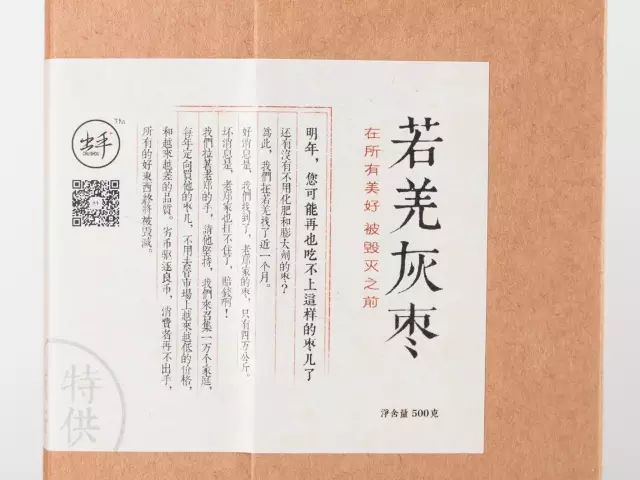 若羌灰枣
在所有美好 被毁灭之前
明年，您可能再也吃不上這样的枣儿了
还有没有不用化肥和膨大剂的枣？
為此，我們在若羌找了近一个月。
好消息是，我們找到了，老郑家的枣，只有四万公斤。
坏消息是，老郑家也扛不住了，赔钱啊！
我們拉著老郑的手，請他堅持，我們來召集一万个家庭，
每年定向買他的枣儿，不用去管市場上越來越低的价格，
和越來越差的品質。劣币驅逐良币，消費者再不出手，
所有的好東西終將被毁滅。
TM
特供
淨含量 500克